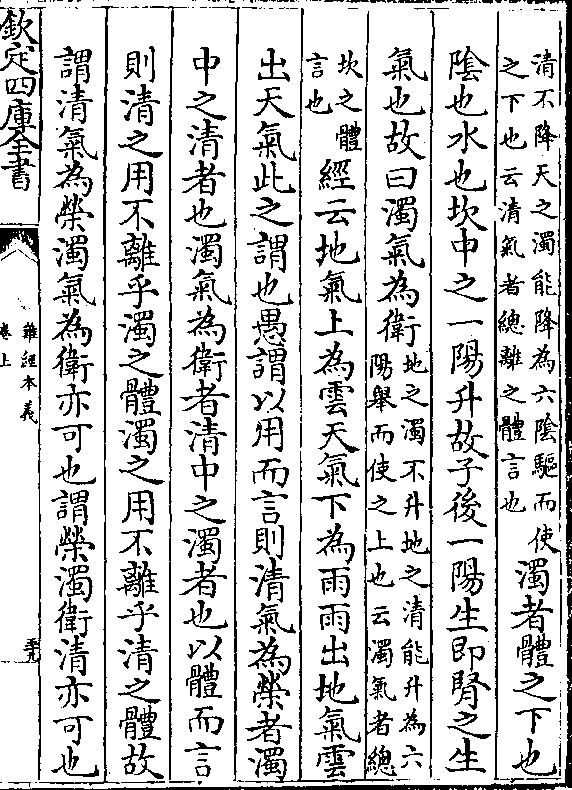 清不降天之濁能降為六陰驅而使
之下也云清氣者總離之體言也
濁者體之下也
陰也水也坎中之一陽升故子後一陽生即腎之生
氣也故曰濁氣為衛
地之濁不升地之清能升為六
陽舉而使之上也云濁氣者總
坎之體
言也
經云地氣上為雲天氣下為雨雨出地氣雲
出天氣此之謂也愚謂以用而言則清氣為榮者濁
中之清者也濁氣為衛者清中之濁者也以體而言
則清之用不離乎濁之體濁之用不離乎清之體故
謂清氣為榮濁氣為衛亦可也謂榮濁衛清亦可也
欽定四庫全書
難經本義
卷上